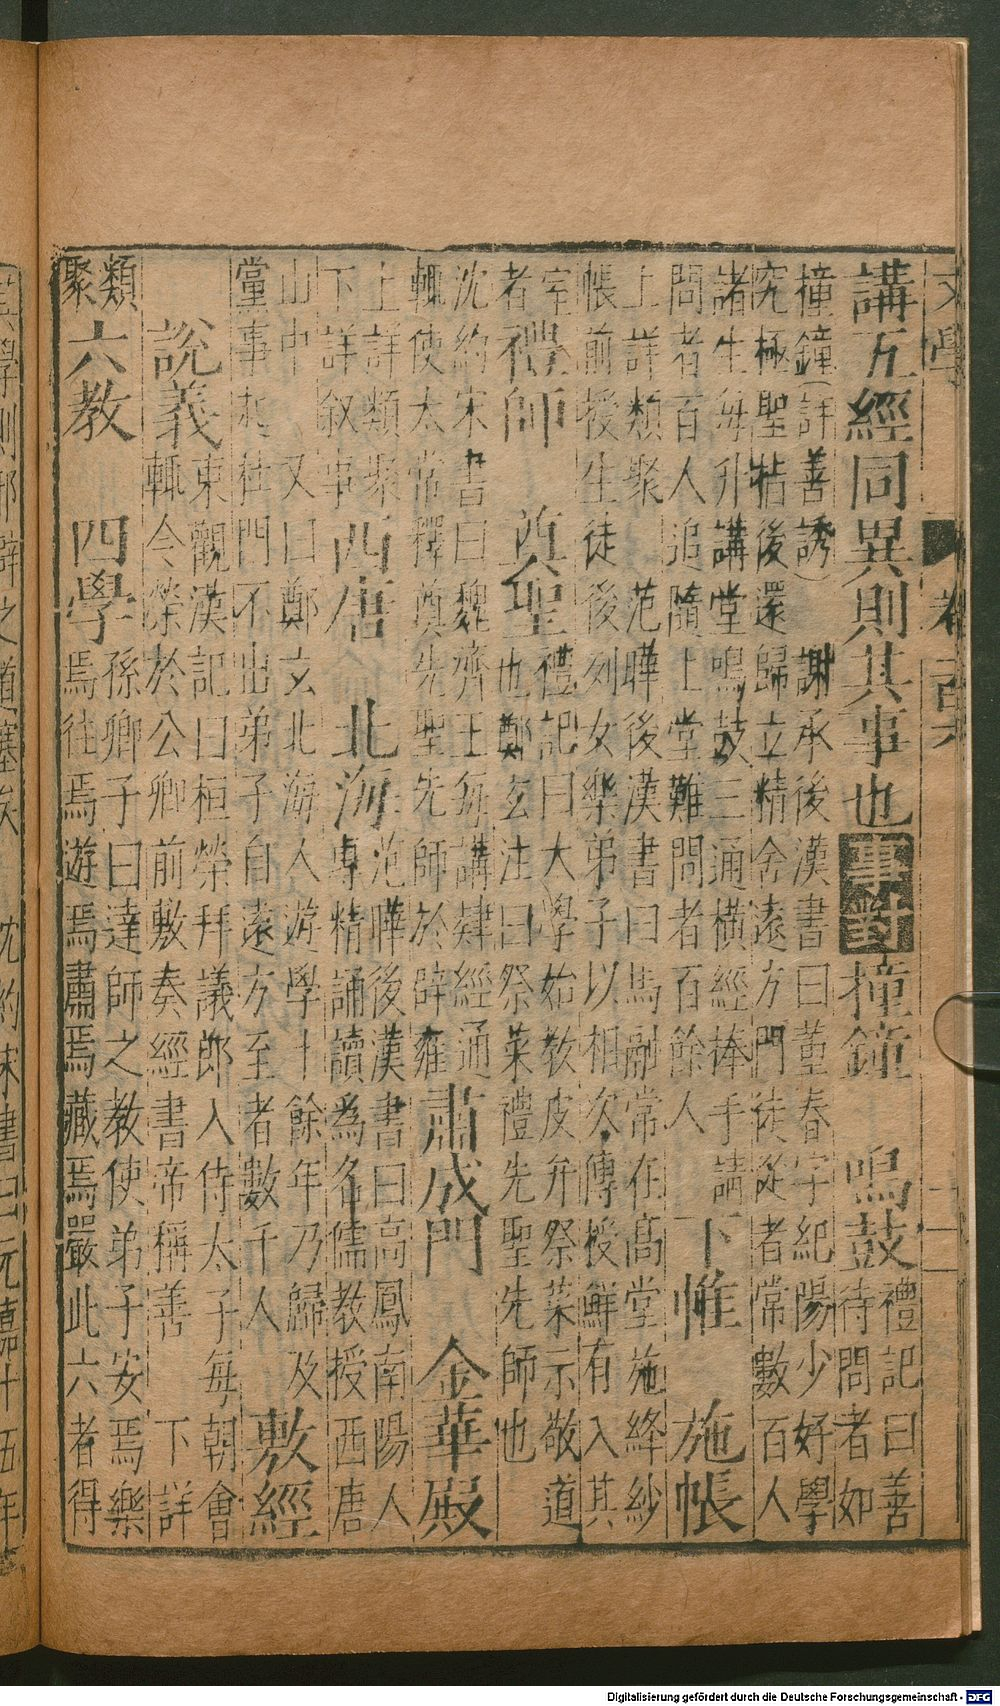 講五經同異則其事也事對撞鐘 鳴鼓禮記曰善
待問者如
撞鐘詳善誘 謝承後漢書曰董春字紀陽少好學
究極聖㫖後還歸立精舍遠方門徒從者常數百人
諸生每升講堂鳴鼓三通橫經捧手請
問者百人追隨上堂難問者百餘人 下帷 施帳
上詳類聚 范曄後漢書曰馬融常在高堂施絳紗
帳前授生徒後列女樂弟子以相次傳授鮮有入其
室
者 禮師 奠聖禮記曰大學始教皮弁祭菜示敬道
也鄭玄注曰祭菜禮先聖先師也
沈約宋書曰魏齊王每講肄經通
輒使太常釋奠先聖先師於辟雍 肅成門 金華殿
上詳類聚
下詳敘事 西唐 北海范曄後漢書曰高鳳南陽人
專精誦讀為名儒教授西唐
山中 又曰鄭玄北海人遊學十餘年乃歸及
黨事起杜門不出弟子自遠方至者數千人 敷經
說義東觀漢記曰桓榮拜議郎入侍太子每朝會
輒令榮於公卿前敷奏經書帝稱善 下詳
類
聚 六教 四學孫卿子曰達師之教使弟子安焉樂
焉往焉遊焉肅焉藏焉嚴此六者得